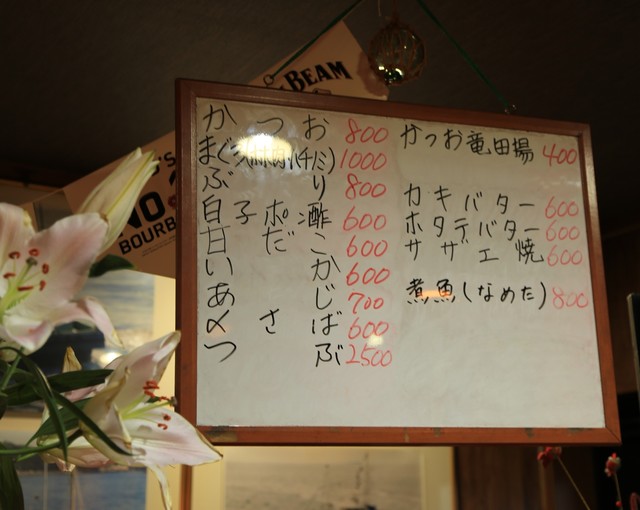 BEAM
NO
BOURB
かつお 800
まぐろ 1000
ぶり 800
白子ポン酢 600
甘だこ 600
いか 600
あじ 700
〆さば 600
つぶ 2500
かつお竜田揚 400
カキバター 600
ホタテバター 600
サザエ焼 600
煮魚(なめた) 800